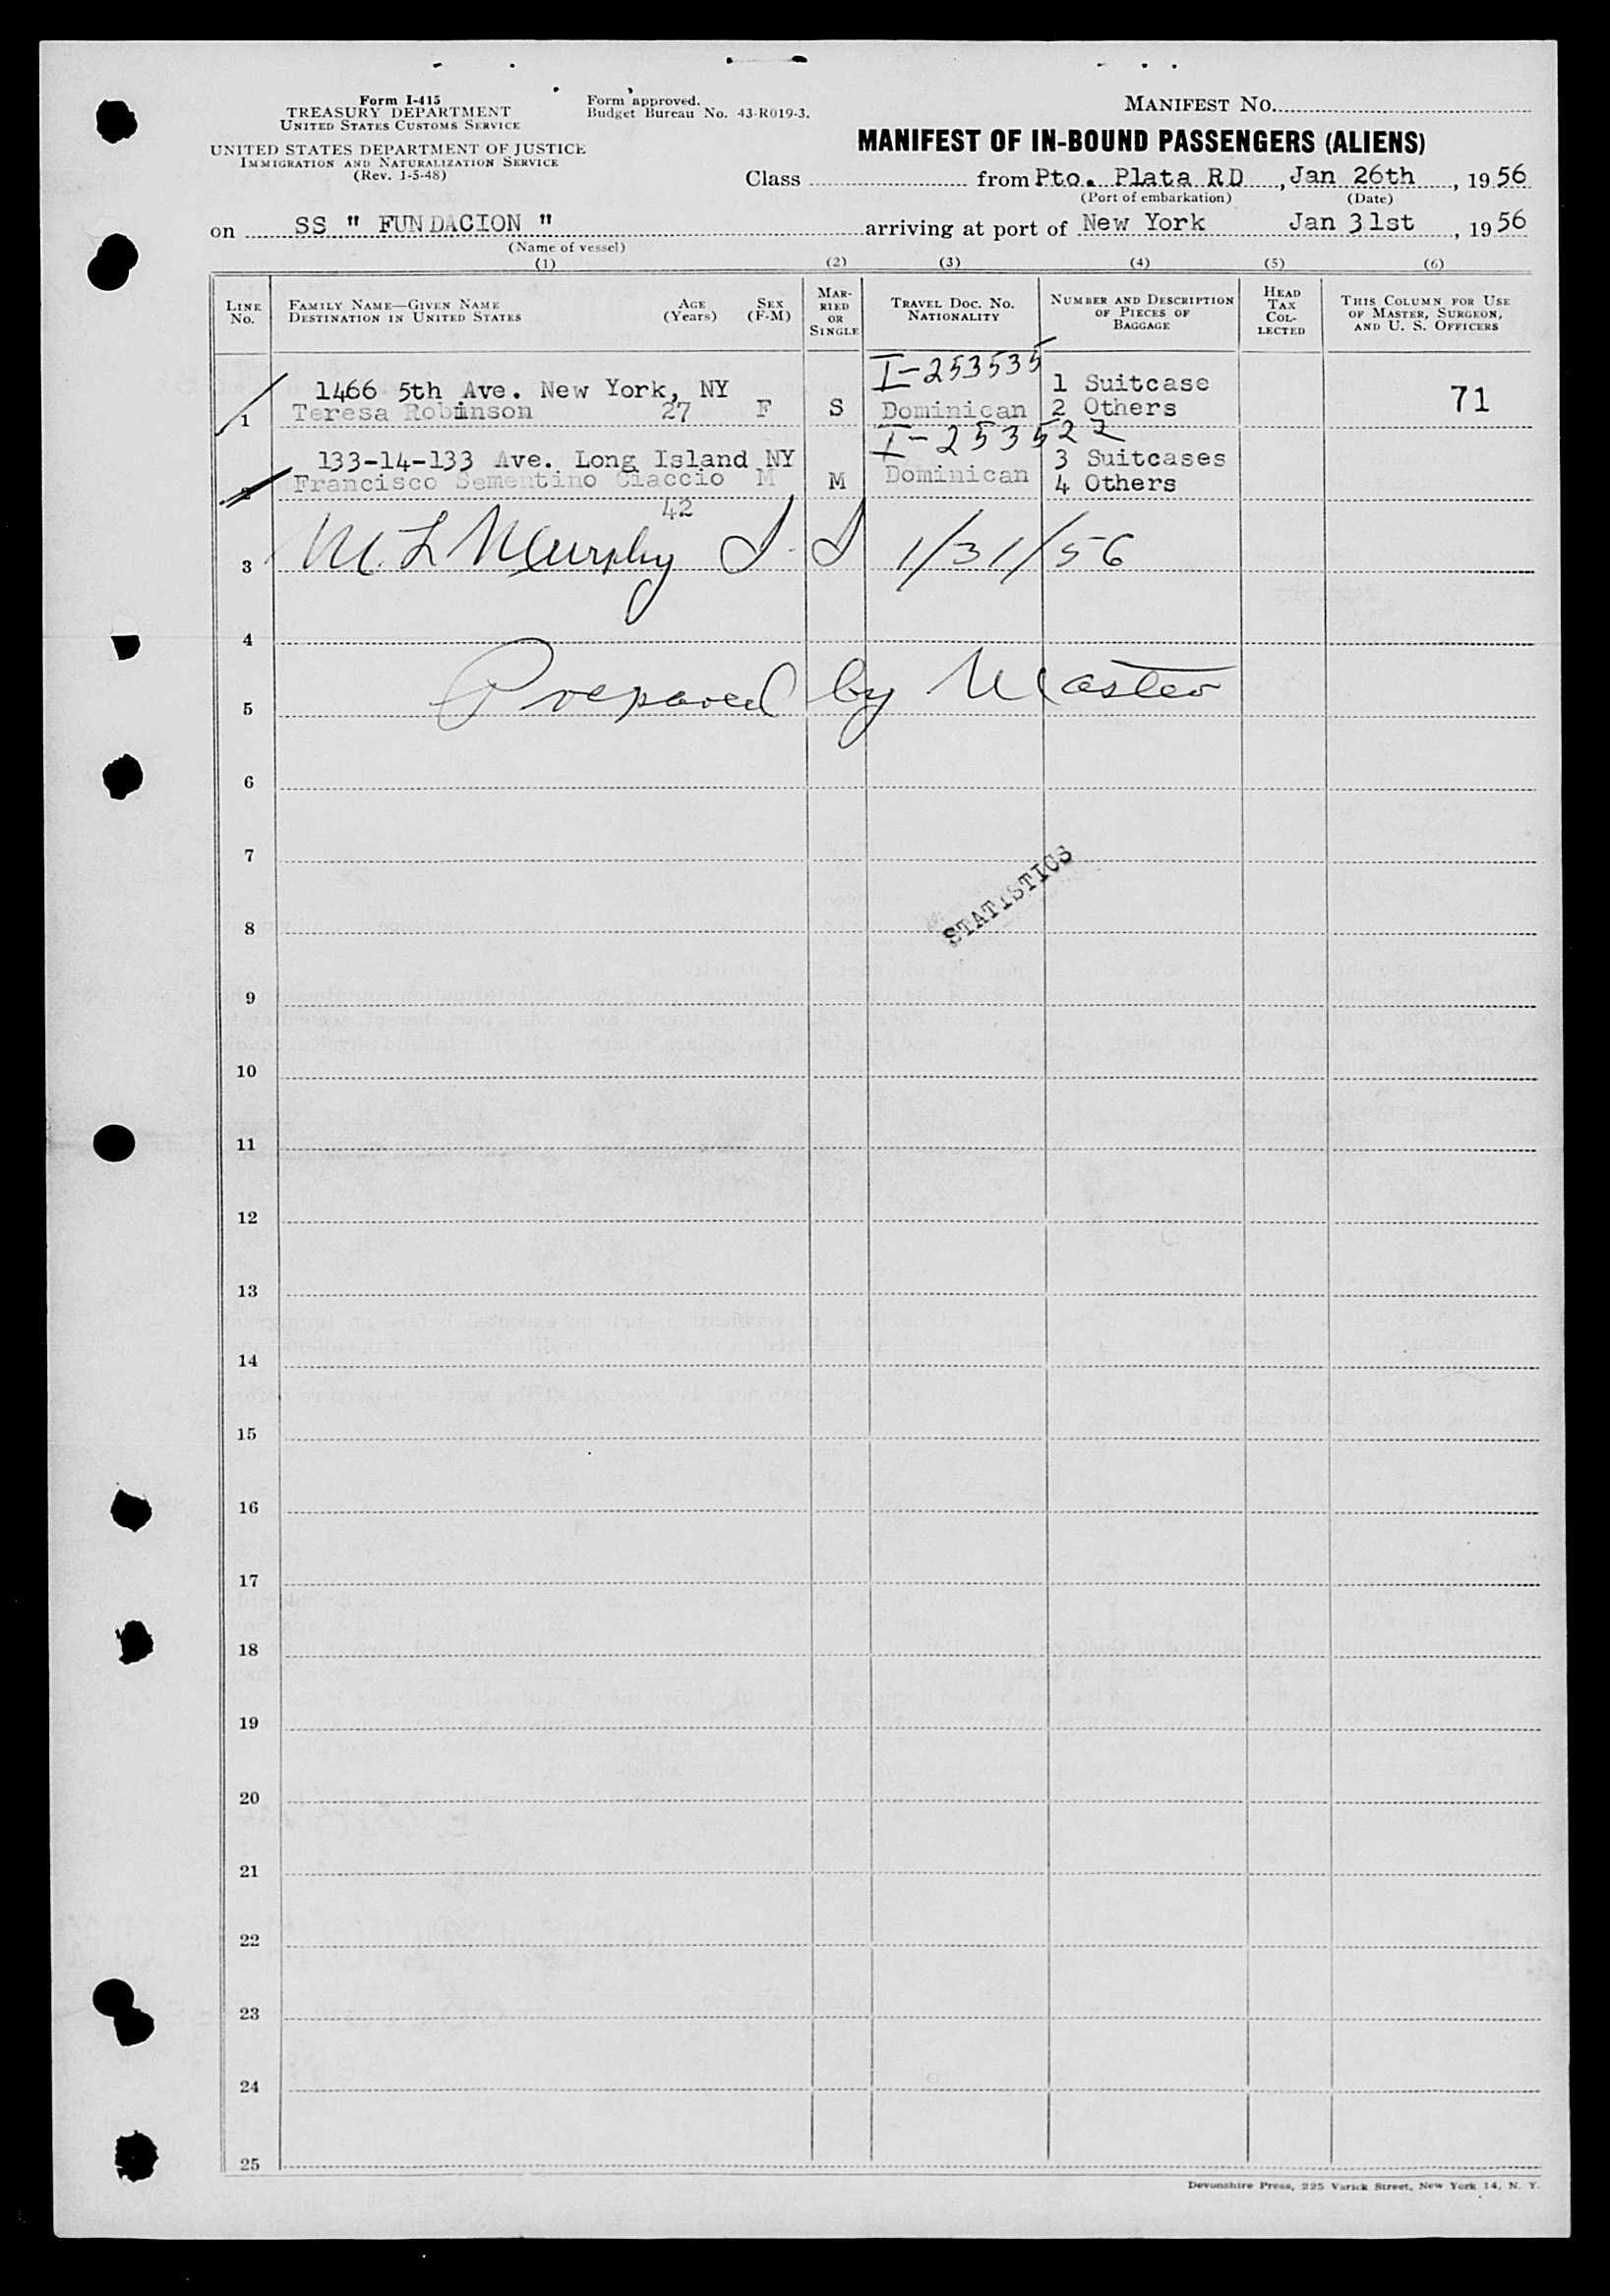 Form I-415
TREASURY DEPARTMENT
UNITED STATES CUSTOMS SERVICE
UNITED STATES DEPARTMENT OF JUSTICE
IMMIGRATION AND NATURALIZATION SERVICE
(Rev. 1-5-48)
Form approved.
Budget Bureau No. 43-R019-3.
MANIFEST NO.
MANIFEST OF IN-BOUND PASSENGERS (ALIENS)
Class from Pto. Plata RD, Jan 26th, 1956
(Port of embarkation) (Date)
on SS " FUNDACION " arriving at port of New York Jan 31st, 1956
(Name of vessel)
(1) (2) (3) (4) (5) (6)
LINE NO.
FAMILY NAME—GIVEN NAME
DESTINATION IN UNITED STATES
AGE (Years)
SEX (F-M)
MARRIED OR SINGLE
TRAVEL DOC. NO.
NATIONALITY
NUMBER AND DESCRIPTION OF PIECES OF BAGGAGE
HEAD TAX COLLECTED
THIS COLUMN FOR USE OF MASTER, SURGEON, AND U. S. OFFICERS
I-253535
1466 5th Ave. New York, NY 1 Suitcase
1 Teresa Robinson 27 F S Dominican 2 Others 71
I-253522
133-14-133 Ave. Long Island NY 3 Suitcases
2 Francisco Sementino Ciaccio M M Dominican 4 Others
42
3 M. L Murphy 1/31/56
4
5 Prepared by Master
6
7
STATISTICS
8
9
10
11
12
13
14
15
16
17
18
19
20
21
22
23
24
25
Devonshire Press, 225 Varick Street, New York 14, N. Y.